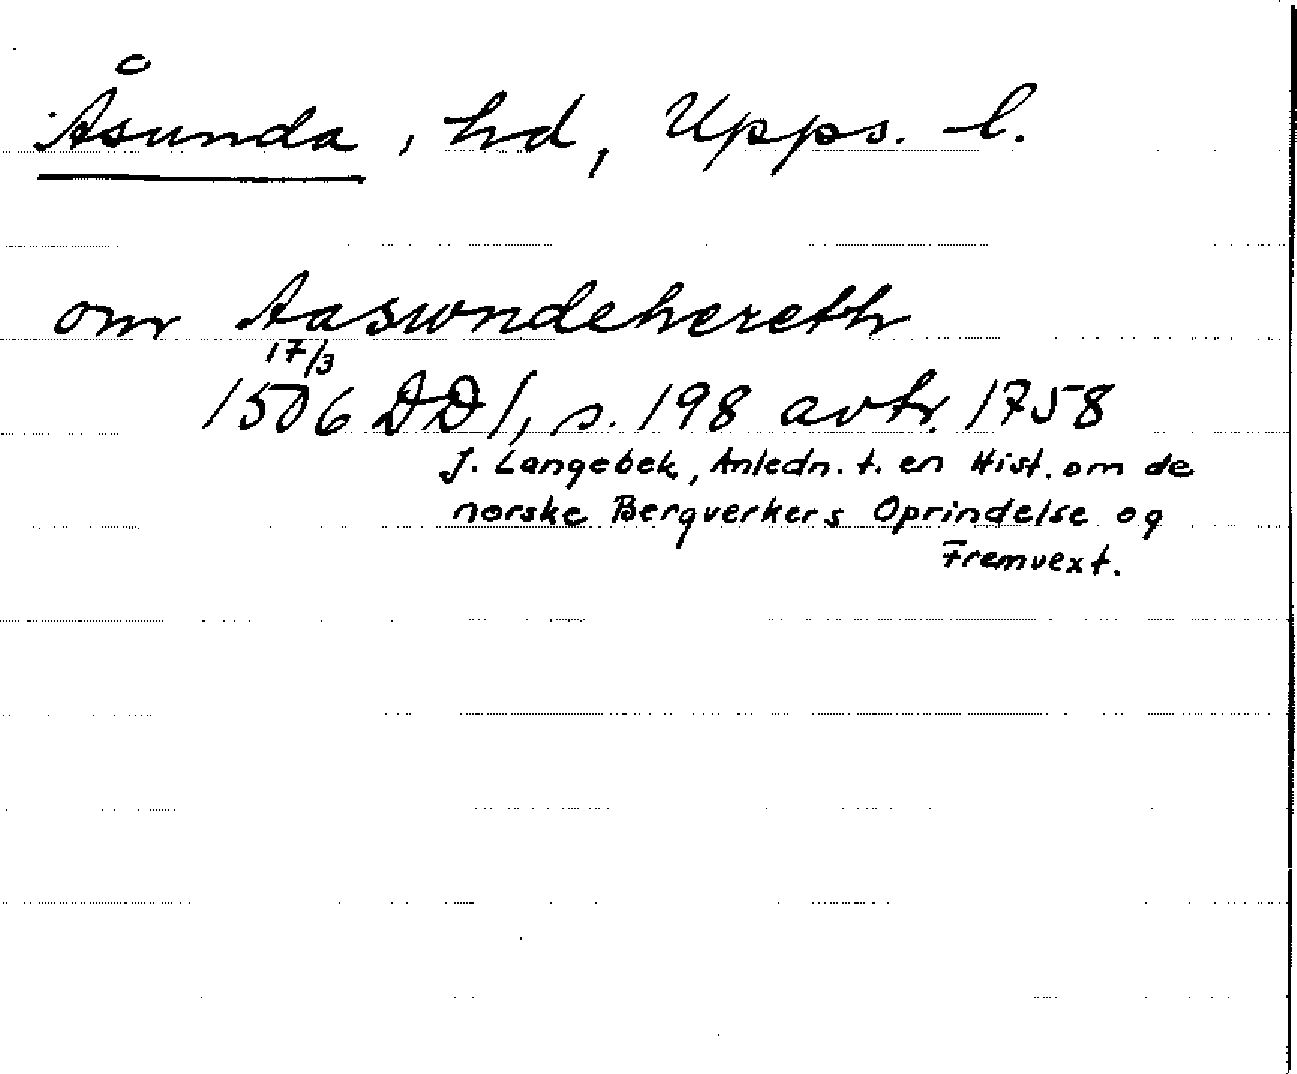 Åsunda, hd, Upps. l.
om Aaswndehereth
17/3
1506 DD1, s. 198 avtr. 1758
J. Langebek, Anledn. t. en Hist. om de
norske Bergverkers Oprindelse og
Fremvext.